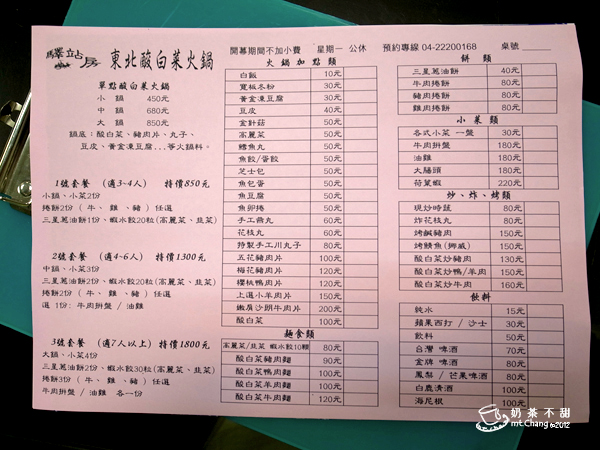 驛站房 東北酸白菜火鍋
開幕期間不加小費 星期一 公休 預約專線 04-22200168 桌號
單點酸白菜火鍋
小 鍋 450元
中 鍋 680元
大 鍋 850元
鍋底：酸白菜、豬肉片、丸子、
豆皮、黃金凍豆腐...等火鍋料。
1號套餐 (適3~4人) 特價850元
小鍋、小菜2份
捲餅2份 ( 牛、 雞、 豬) 任選
三星蔥油餅1份、蝦水餃20粒(高麗菜、韭菜)
2號套餐 (適4~6人) 特價1300元
中鍋、小菜3份
三星蔥油餅2份、蝦水餃20粒(高麗菜、韭菜)
捲餅2份 ( 牛、 雞、 豬) 任選
選 1份: 牛肉拼盤 / 油雞
3號套餐 (適7人以上) 特價1800元
大鍋、小菜4份
三星蔥油餅2份、蝦水餃30粒(高麗菜、韭菜)
捲餅3份 ( 牛、 雞、 豬) 任選
牛肉拼盤 / 油雞 各一份
火鍋加點類
白飯 10元
寬板冬粉 30元
黃金凍豆腐 30元
豆皮 40元
金針菇 50元
高麗菜 50元
鱈魚丸 50元
魚餃/蛋餃 50元
芝士包 50元
魚包蛋 50元
魚豆腐 50元
魚卵捲 50元
手工鼎丸 60元
花枝丸 60元
特製手工川丸子 80元
五花豬肉片 100元
梅花豬肉片 120元
櫻桃鴨肉片 120元
上選小羊肉片 150元
嫩肩沙朗牛肉片 200元
酸白菜 100元
麵食類
高麗菜/韭菜 蝦水餃10顆 80元
酸白菜豬肉麵 90元
酸白菜鴨肉麵 100元
酸白菜羊肉麵 100元
酸白菜牛肉麵 120元
餅 類
三星蔥油餅 40元
牛肉捲餅 80元
豬肉捲餅 80元
雞肉捲餅 80元
小 菜 類
各式小菜 一盤 30元
牛肉拼盤 180元
油雞 180元
大腸頭 180元
荷葉蝦 220元
炒、炸、烤類
現炒時蔬 80元
炸花枝丸 80元
烤鹹豬肉 150元
烤鯖魚(挪威) 150元
酸白菜炒豬肉 130元
酸白菜炒鴨/羊肉 150元
酸白菜炒牛肉 160元
飲料
純水 15元
蘋果西打 / 沙士 30元
飲料 50元
台灣 啤酒 70元
金牌 啤酒 80元
鳳梨 / 芒果啤酒 80元
白鹿清酒 100元
海尼根 100元
奶茶不甜
mt.Chang ©2012